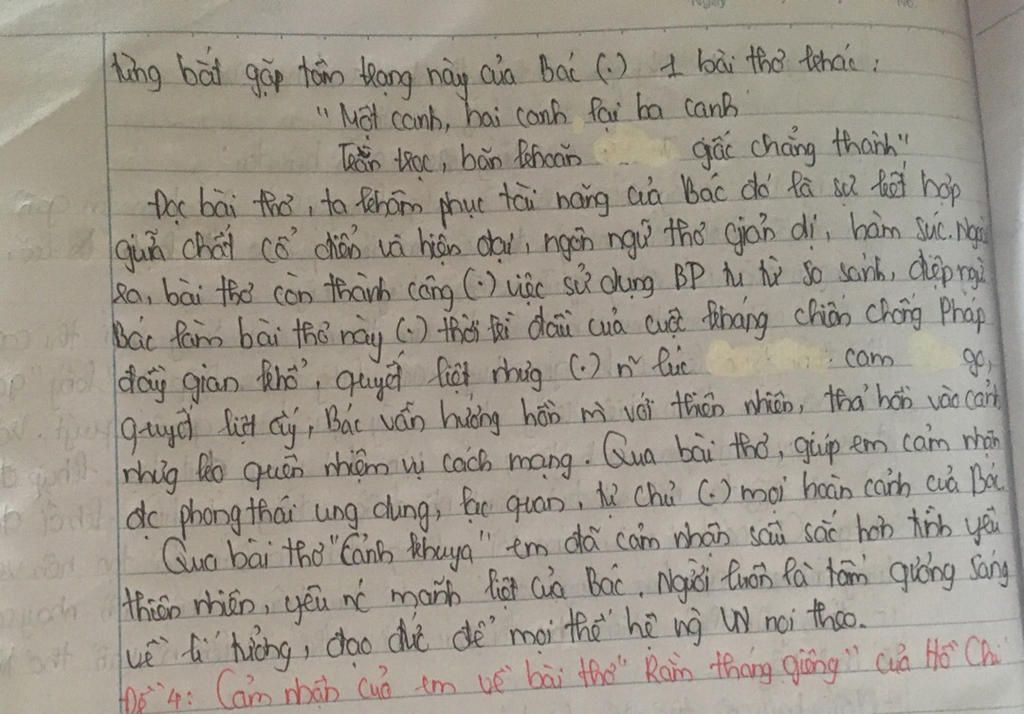 từng bắt gặp tâm trạng này của Bác (.) 1 bài thơ khác:
"Một canh, hai canh lại ba canh
Trằn trọc, băn khoăn giấc chẳng thành"
Đọc bài thơ, ta khâm phục tài năng của Bác đó là sự kết hợp
giữa chất cổ điển và hiện đại, ngôn ngữ thơ giản dị, hàm súc. Ngoài
ra, bài thơ còn thành công (.) việc sử dụng BP tu từ so sánh, điệp ngữ
Bác làm bài thơ này (.) thời kì đầu của cuộc kháng chiến chống Pháp
đầy gian khổ, quyết liệt nhưg (.) n~ lúc cam go,
quyết liệt ấy, Bác vẫn hướng hồn mì với thiên nhiên, thả hồn vào cảnh
nhưg ko quên nhiệm vụ cách mạng. Qua bài thơ, giúp em cảm nhận
đc phong thái ung dung, lạc quan, tự chủ (.) mọi hoàn cảnh của Bác.
Qua bài thơ "Cảnh khuya" em đã cảm nhận sâu sắc hơn tình yêu
thiên nhiên, yêu nc mãnh liệt của Bác. Người luôn là tấm gương sáng
về lí tưởng, đạo đức để mọi thế hệ ng VN noi theo.
Đề 4: Cảm nhận của em về bài thơ "Rằm tháng giêng" của Hồ Chí